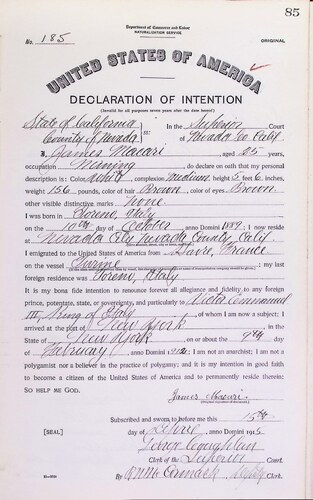 85
Department of Commerce and Labor
NATURALIZATION SERVICE
No. 185
ORIGINAL
UNITED STATES OF AMERICA
DECLARATION OF INTENTION
(Invalid for all purposes seven years after the date hereof)
State of California
County of Nevada ss:
In the Superior Court
of Nevada Co Calif.
I, James Macari, aged 25 years,
occupation Mining, do declare on oath that my personal
description is: Color White, complexion Medium, height 5 feet 6 inches,
weight 156 pounds, color of hair Brown, color of eyes Brown
other visible distinctive marks None
I was born in Loreno, Italy
on the 10th day of October, anno Domini 1889; I now reside
at Nevada City Nevada County, Calif.
I emigrated to the United States of America from Havre, France
on the vessel ; my last
foreign residence was Loreno, Italy
It is my bona fide intention to renounce forever all allegiance and fidelity to any foreign
prince, potentate, state, or sovereignty, and particularly to Victor Emmanuel
III, King of Italy, of whom I am now a subject; I
arrived at the port of New York, in the
State of New York, on or about the 9th day
of February, anno Domini 1912; I am not an anarchist; I am not a
polygamist nor a believer in the practice of polygamy; and it is my intention in good faith
to become a citizen of the United States of America and to permanently reside therein:
SO HELP ME GOD.
James Macari
Subscribed and sworn to before me this 15th
[SEAL] day of , anno Domini 1915
George Coughlan
Clerk of the Superior Court.
By R. N. McCormack, Deputy Clerk.